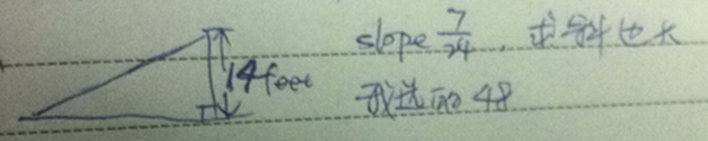 14 feet
slope 7/24，求斜边长
我选的 48